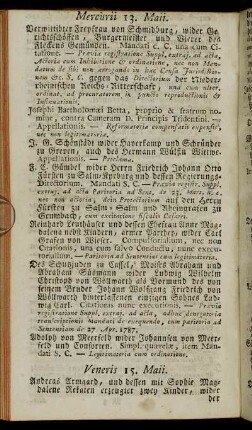 Mercurii 13. Maii.
Verwittibter Freyfrau von Schmidburg, wider Ge-
richtsschöffen, Burgermeister und Vierer des
Fleckens Gemünden. Mandati C. C. una cum Ci-
tatione. — Prævia registratura Suppl. extraj. ad acta,
Actoria cum Inhibitione & ordinatione, nec non Man-
datum de sibi non arrogando in hac Causa Jurisdictio-
nem &c. S. C. gegen das Directorium der Niederr-
heinischen Reichs-Ritterschaft, una cum ulter.
ordinat. ad procuratorem in punctis reproducibilis &
Insinuationis.
Josephi Bartholomæi Betta, proprio & fratrum no-
mine, contra Cameram D. Principis Tridentini. —
Appellationis. — Reformatoria compensatis expensis,
nec non legitimatoria.
J. G. Schönstädt wider Hauerkamp und Schründer
in Greven, auch des Hermann Wültzn Wittwe-
Appellationis. — Paritoria.
J. C. Günthel wider Herrn Friedrich Johann Otto
Fürsten zu Salm-Kyrburg und dessen Regierungs-
Directorium. Mandati S. C. — Prævia registr. Suppl.
extraj. ad acta Paritoria ad Sent. de 23. Mart. a. c.
nec non actoria; dein Protectorium auf den Herrn
Fürsten zu Salm-Salm und Rheingrafen zu
Grumbach, cum excitatione fiscalis Cæsarei.
Reinhard Leuthäuser und dessen Ehefrau Anne Mag-
dalena nebst Kindern, armer Partheye, wider Carl
Grafen von Wieser. Compulsorialium, nec non
Citationis, una cum salvo Conductu, nunc execu-
torialium. — Paritoria ad Sententiam cum legitimatoria.
Des Schutzjuden in Cassel, Moses Abraham und
Abraham Süsmann, wider Ludwig Wilhelm
Christoph von Wöllwarth als Vormund des von
seinem Bruder Johann Wolfgang Friedrich von
Wöllwarth hinterlassenen einzigen Sohnes Lud-
wig Carl. Citationis nunc executionis. — Prævia
registratura Suppl. extraj. ad acta, adhuc denegatoria
transcriptionis Mandati de exequendo, cum paritoria ad
Sententiam de 27 Apr. 1787.
Adolph von Meerfeld wider Johannsen von Meer-
feld und Consorten. Simpl. querelæ, item Man-
dati S. C. — Legitimatoria cum ordinatione.
Veneris 15. Maii.
Andreas Armgard, und dessen mit Sophie Mag-
dalene erzeugter zwey Kinder, wider
der